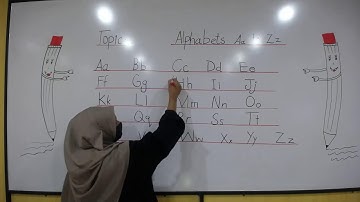 Topic Alphabets Aa Zz
Aa Bb Cc Dd Ee
Ff Gg Hh Ii Jj
Kk Ll Mm Nn Oo
Qq Rr Ss Tt
V Ww Xx Yy Zz